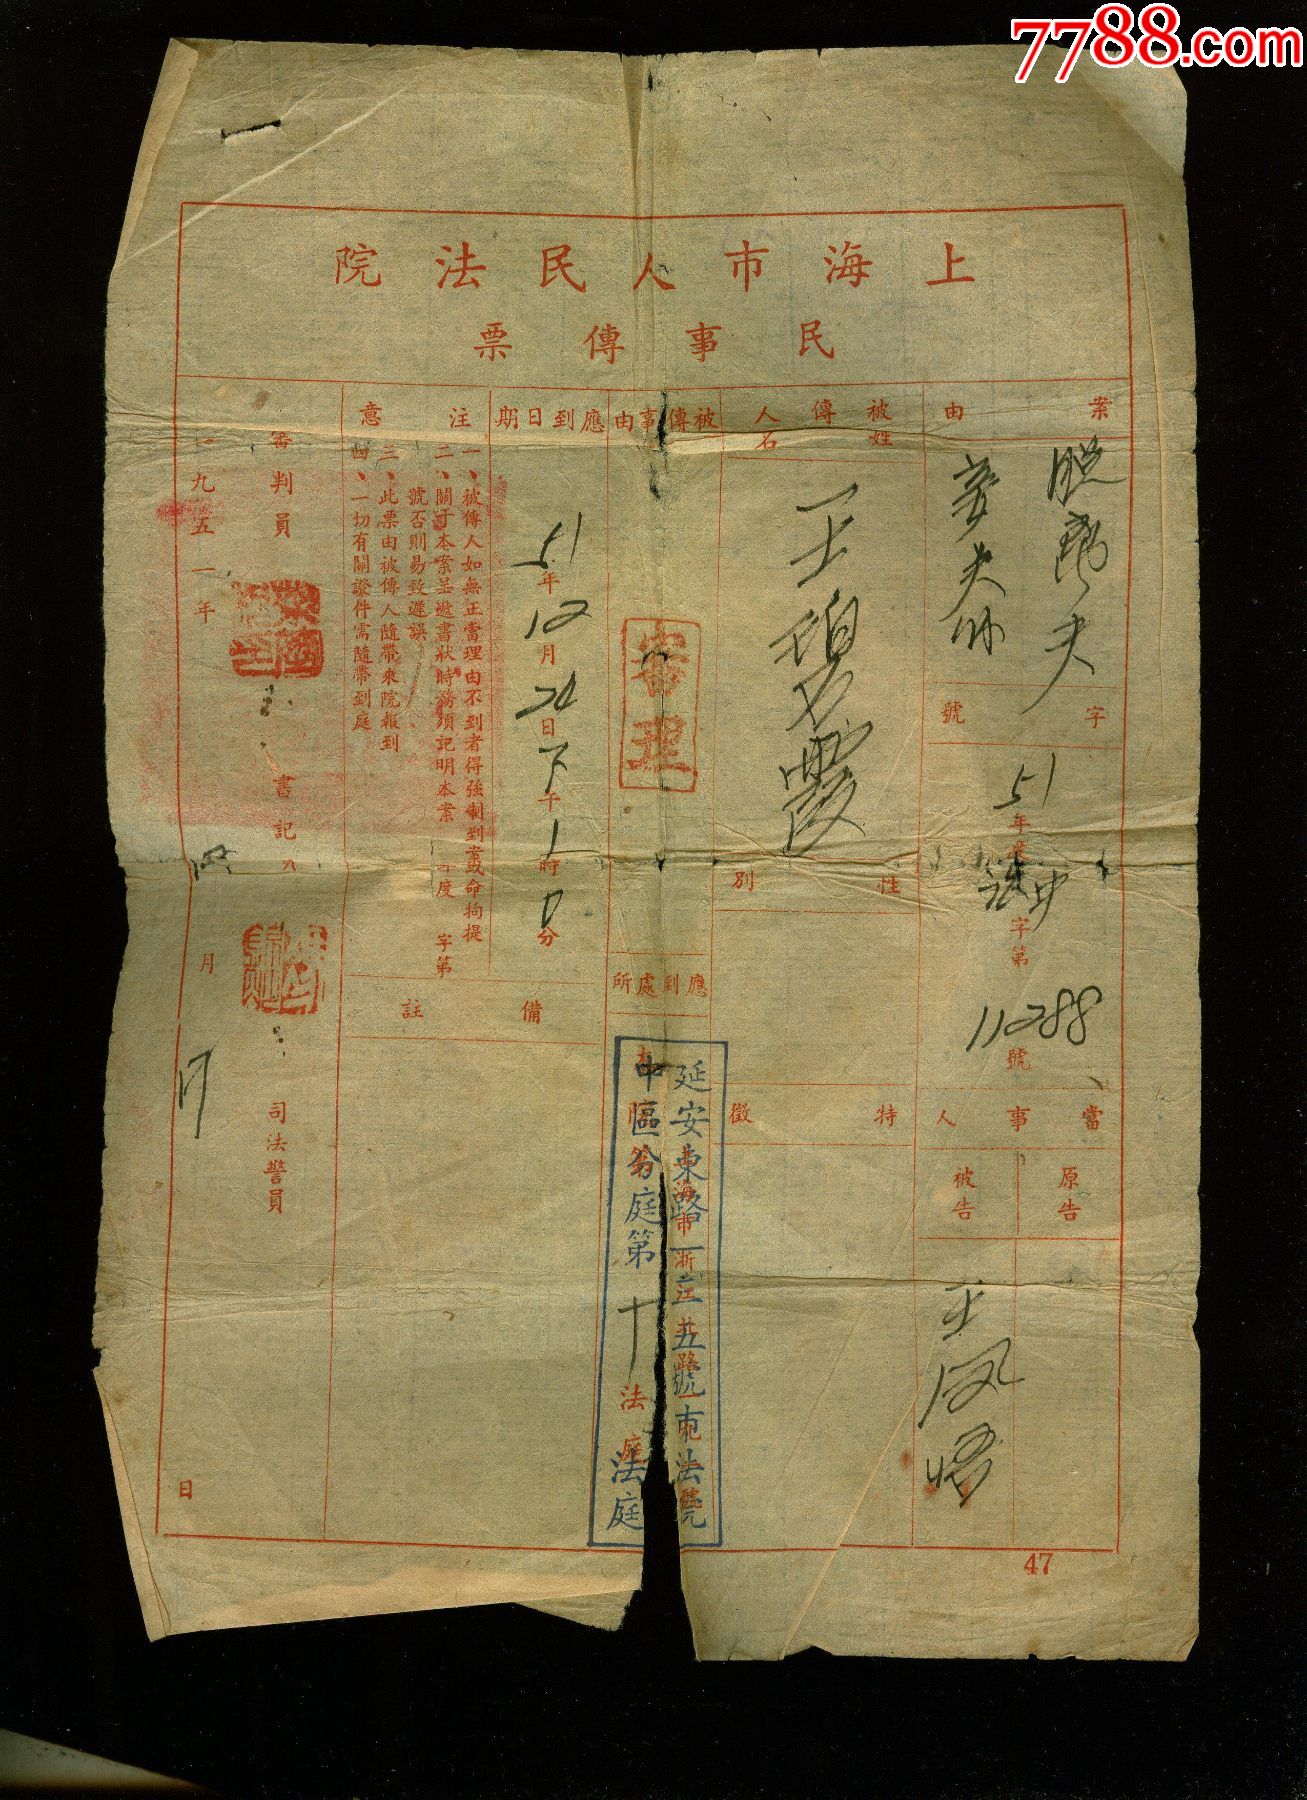 7788.com
上海市人民法院
民事傳票
案由
妾夫
字號
51年度
字第
11288號
當事人
原告
被告
王鳳悟
被傳人姓名
王碧霞
性別
特徵
被傳事由
審理
應到處所
延安東路一五號市法院
中區分庭第十法庭
法庭
應到日期
51年12月24日下午1時0分
注意
一、被傳人如無正當理由不到者得強制到案或命拘提
二、關于本案呈遞書狀時務須記明本案 年度 字第
號否則易致遲誤
三、此票由被傳人隨帶來院報到
四、一切有關證件需隨帶到庭
備註
審判員
書記
司法警員
一九五一年
月
日
47